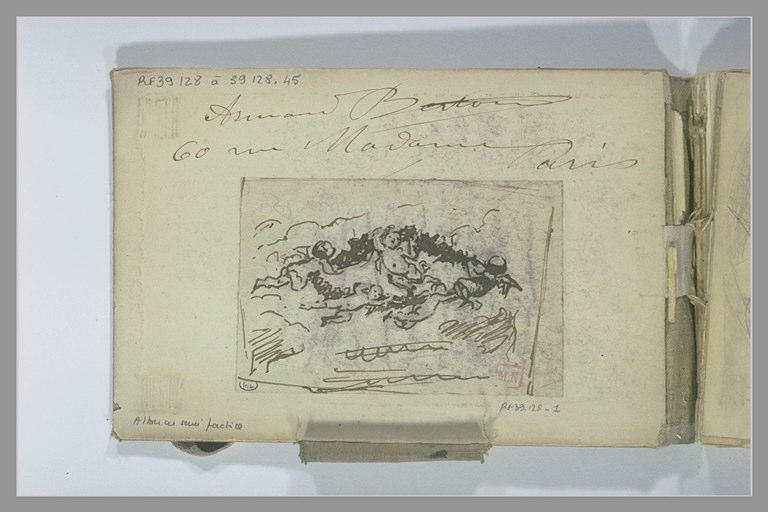 RF39 128 à 39.128.45
Armand Berton
60 rue Madame Paris
M.N
RF39.128-1
Album semi factice